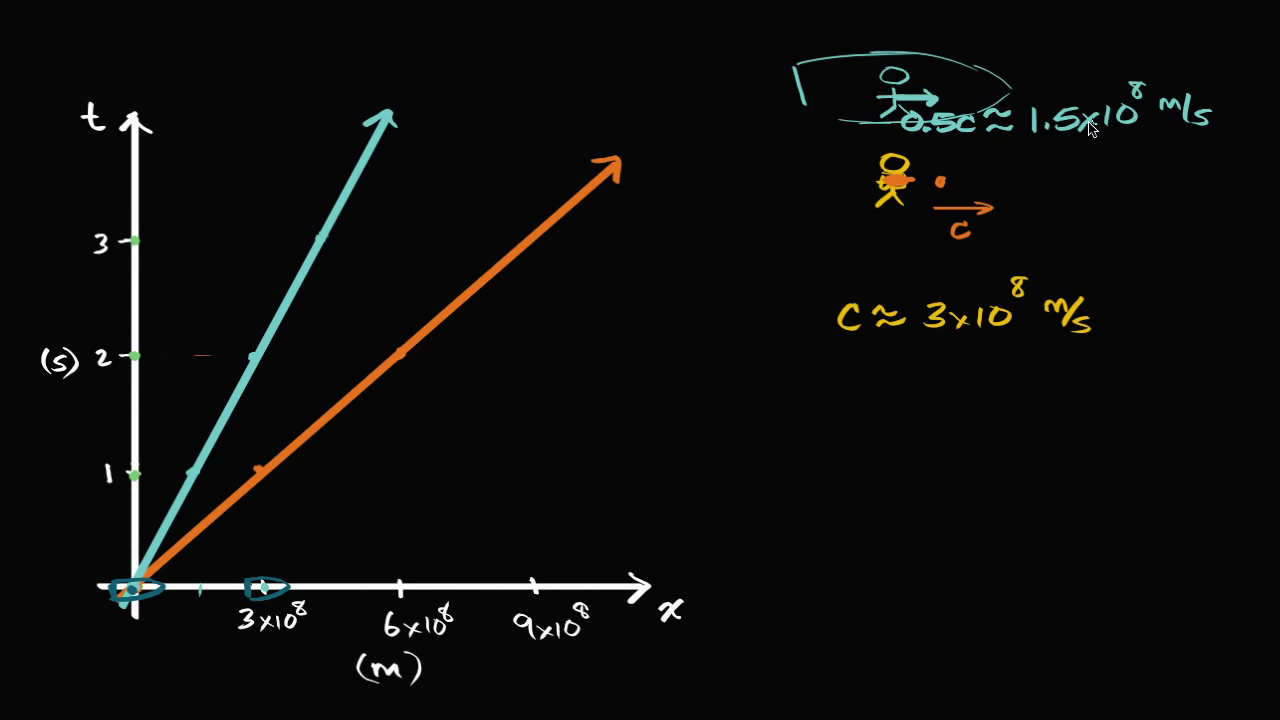 t
3
(s) 2
1
3×10⁸
6×10⁸
9×10⁸
x
(m)
0.5c ≈ 1.5×10⁸ m/s
c
c ≈ 3×10⁸ m/s